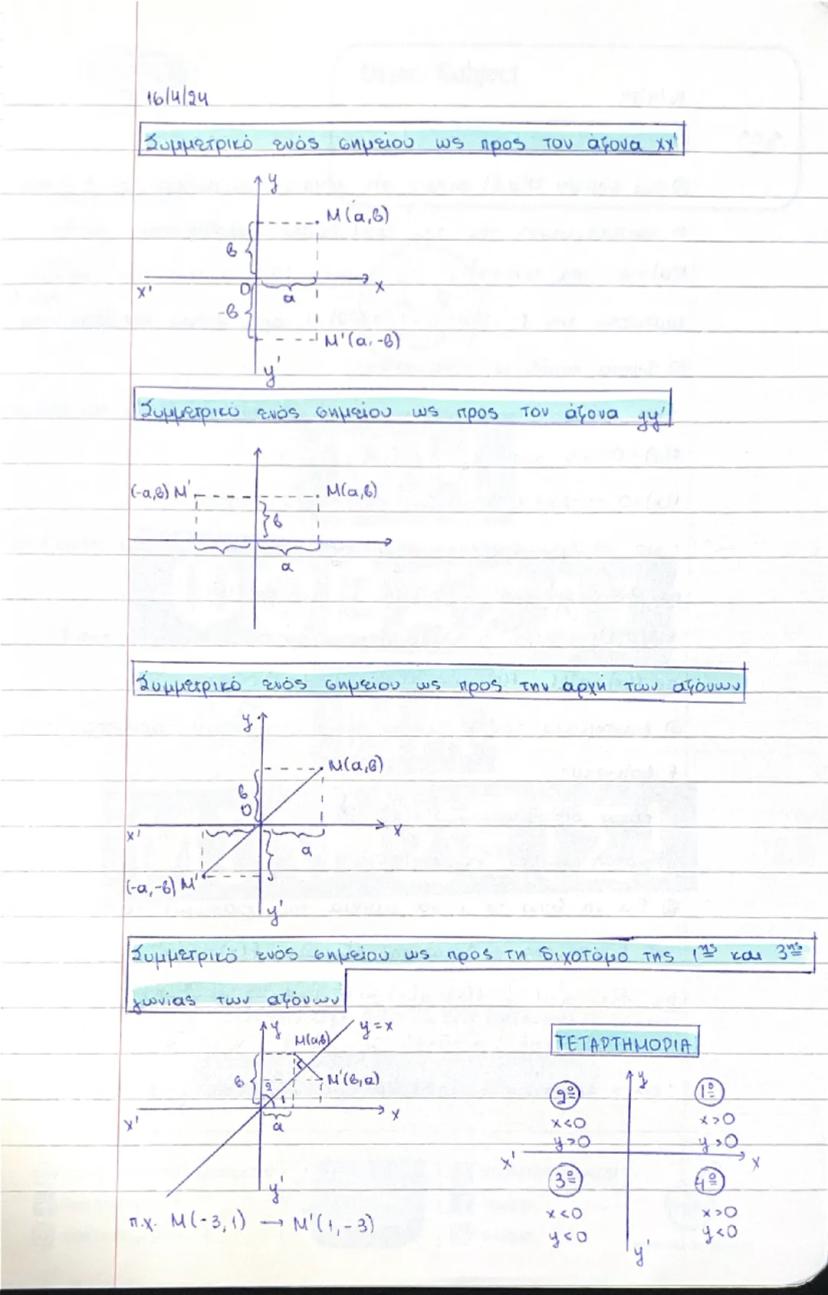 16/4/24
Συμμετρικό ενός σημείου ως προς τον άξονα xx'
y
M(α,β)
β
x'
O
α
x
-β
M'(α,-β)
y'
Συμμετρικό ενός σημείου ως προς τον άξονα yy'
(-α,β) M'
M(α,β)
β
α
Συμμετρικό ενός σημείου ως προς την αρχή των αξόνων
y
M(α,β)
β
O
x'
α
x
(-α,-β) M'
y'
Συμμετρικό ενός σημείου ως προς τη διχοτόμο της 1ης και 3ης
γωνίας των αξόνων
y
y=x
M(α,β)
β
2
M'(β,α)
1
x'
α
x
y'
π.χ. M(-3,1) → M'(1,-3)
ΤΕΤΑΡΤΗΜΟΡΙΑ
y
2ο
1ο
x<0
x>0
y>0
y>0
x'
x
3ο
4ο
x<0
x>0
y<0
y<0
y'